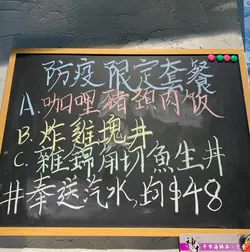 防疫限定套餐
A. 咖哩豬頸肉飯
B. 炸雞塊丼
C. 雜錦角切魚生丼
#奉送汽水,均$48